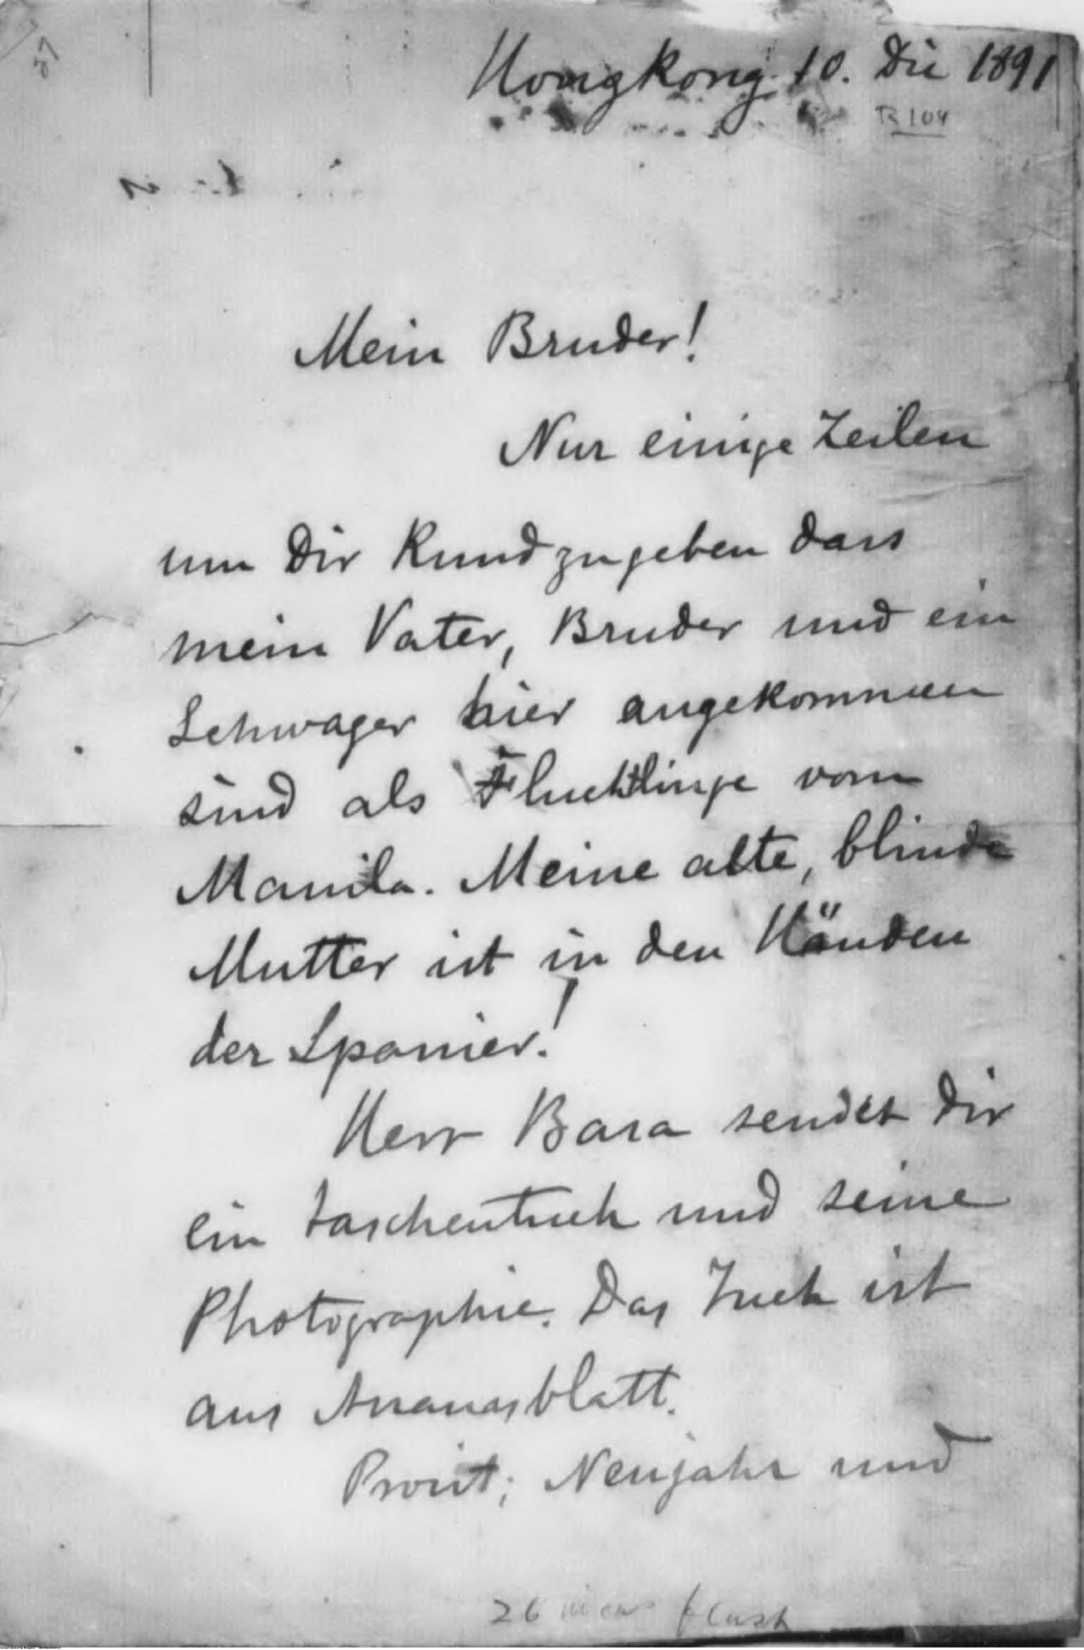 Hongkong 10. Die 1891
R 104
Mein Bruder!
Nur einige Zeilen
um Dir Kund zu geben dass
mein Vater, Bruder und ein
Schwager hier angekommen
sind als Fluchtlinge vom
Manila. Meine alte, blinde
Mutter ist in den Händen
der Spanier!
Herr Basa sendet Dir
ein Taschentuch und seine
Photographie. Das Tuch ist
aus Ananasblatt.
Prosit; Neujahr und
26